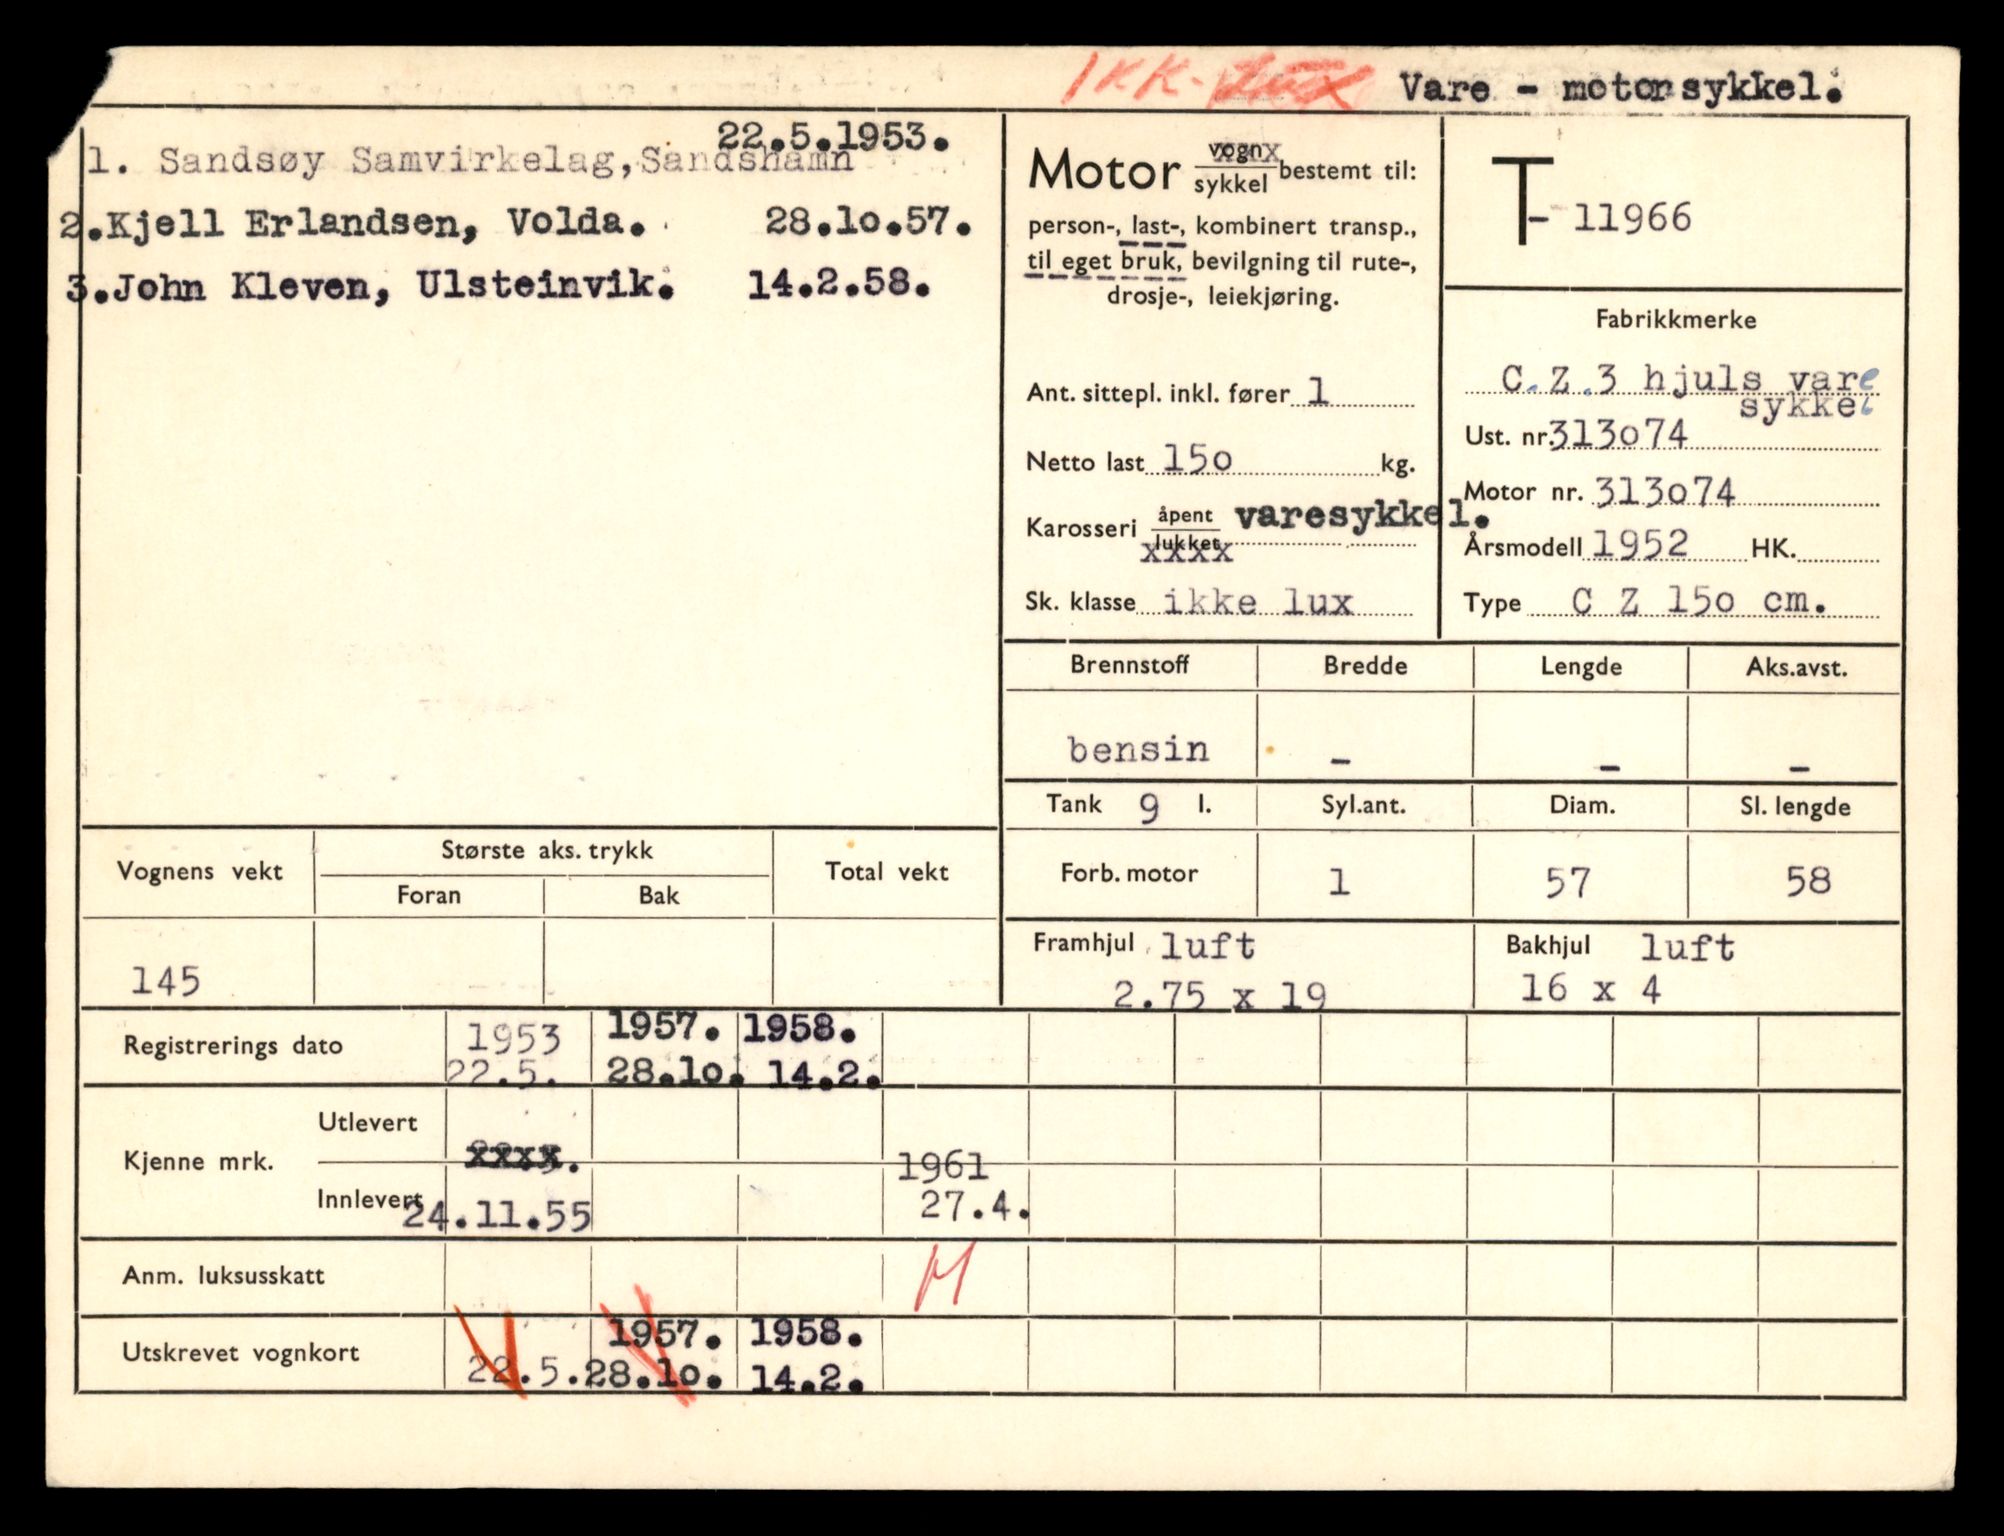 IKK-lux Vare - motorsykkel.
22.5.1953.
1. Sandsøy Samvirkelag, Sandshamn
2.Kjell Erlandsen, Volda. 28.10.57.
3.John Kleven, Ulsteinvik. 14.2.58.
Motor vogn
sykkel bestemt til:
person-, last-, kombinert transp.,
til eget bruk, bevilgning til rute-,
drosje-, leiekjøring.
Ant. sittepl. inkl. fører 1
Netto last 150 kg.
Karosseri åpent varesykkel.
lukket
xxxx
Sk. klasse ikke lux
T- 11966
Fabrikkmerke
C.Z.3 hjuls vare
sykkel
Ust. nr. 313o74
Motor nr. 313o74
Årsmodell 1952 HK.
Type C Z 15o cm.
Brennstoff Bredde Lengde Aks.avst.
bensin - - -
Tank 9 l. Syl.ant. Diam. Sl. lengde
Forb. motor 1 57 58
Framhjul luft Bakhjul luft
2.75 x 19 16 x 4
Vognens vekt Største aks. trykk Total vekt
Foran Bak
145
Registrerings dato 1953 1957. 1958.
22.5. 28.1o. 14.2.
Kjenne mrk. Utlevert xxxx.
Innlevert 24.11.55 1961
27.4.
Anm. luksusskatt M
Utskrevet vognkort 1957. 1958.
22.5. 28.1o. 14.2.